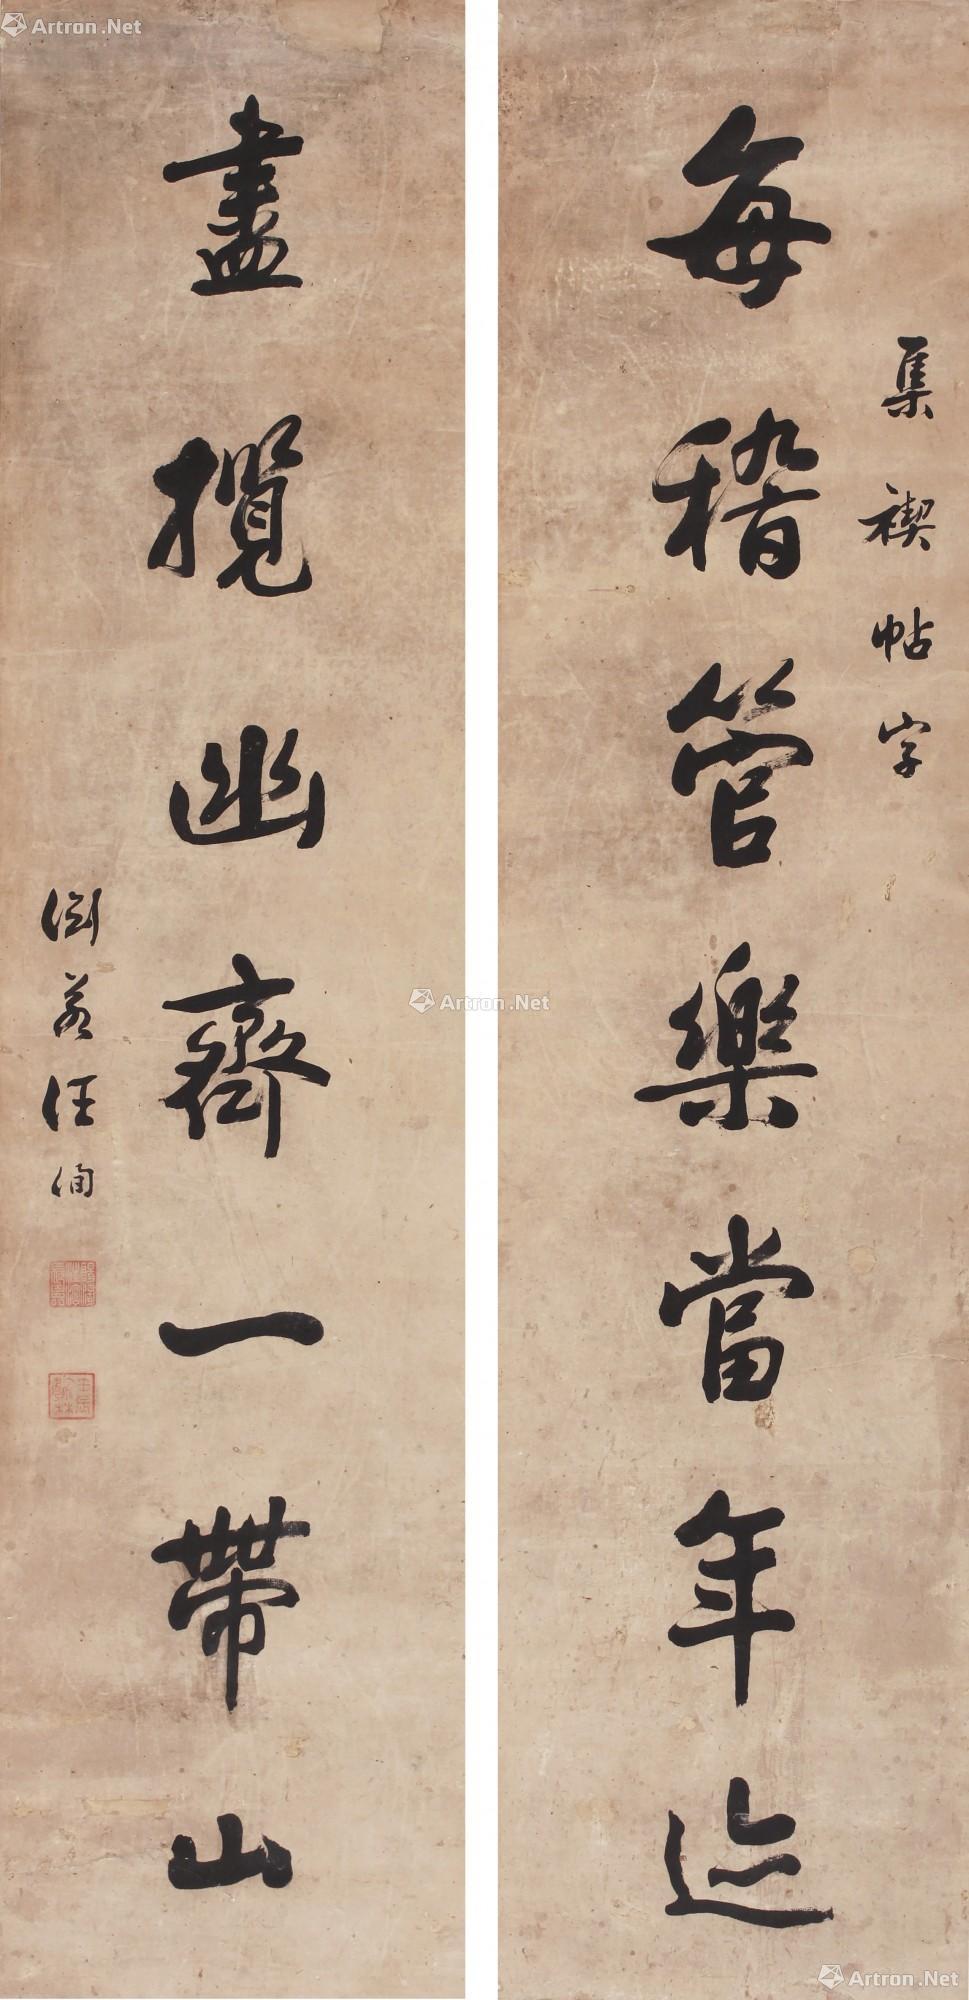 集禊帖字
每稽管樂當年迹
盡攬幽齊一帶山
淵若汪
Artron.Net
Artron.Net
Artron.Net